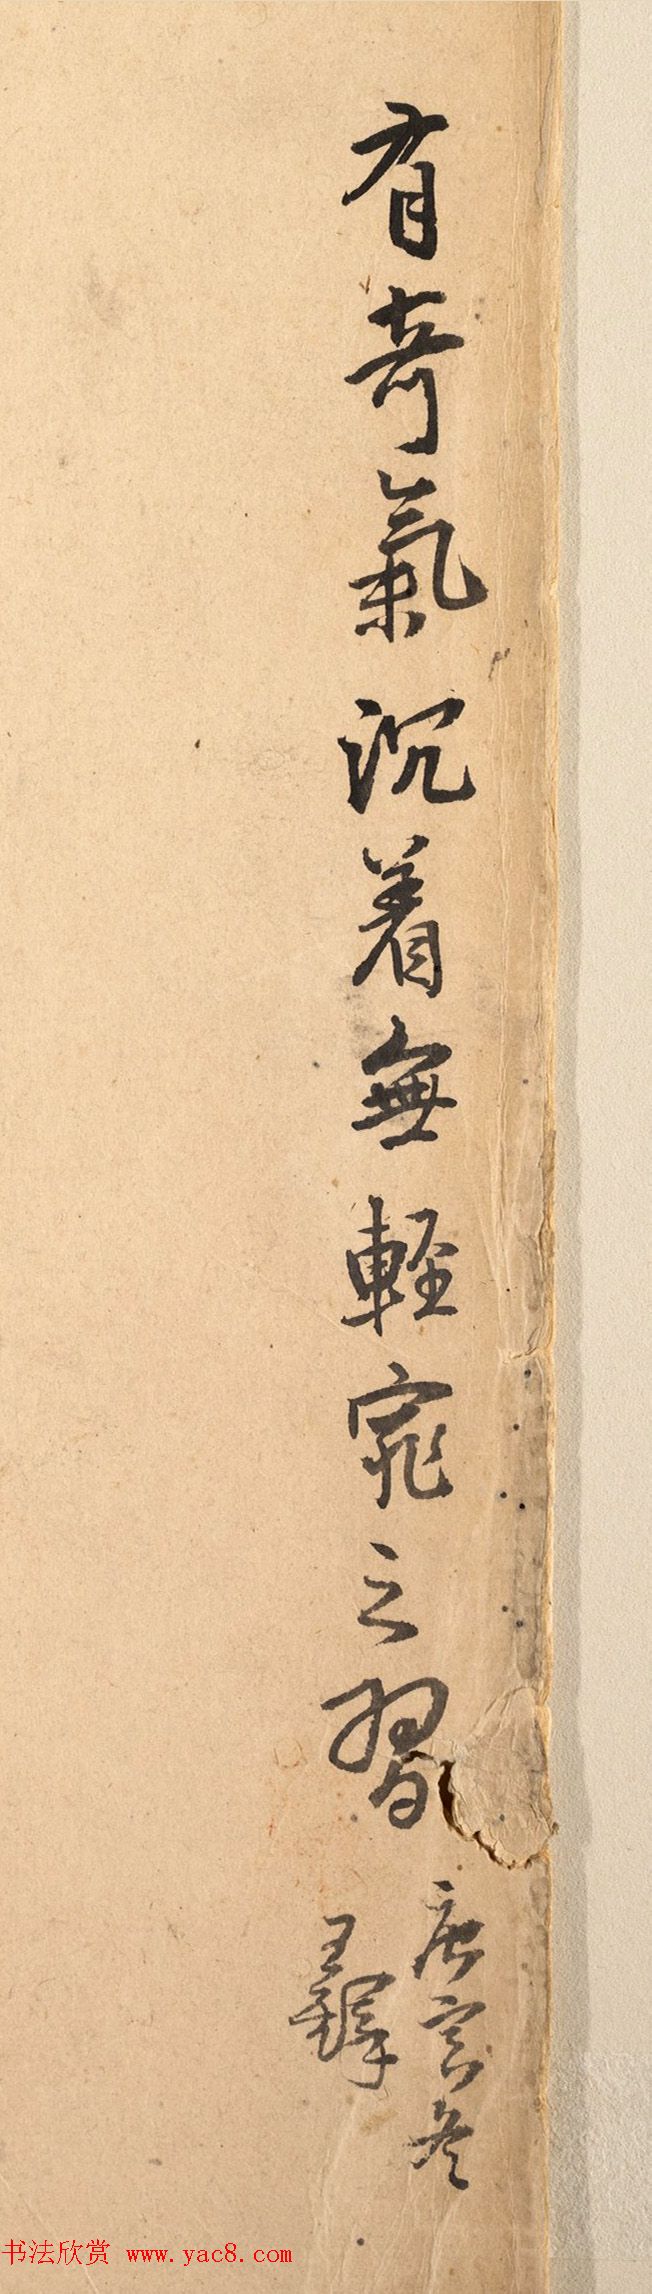 有奇氣沉着無輕窕之習
庚寅冬
王鐸
书法欣赏 www.yac8.com